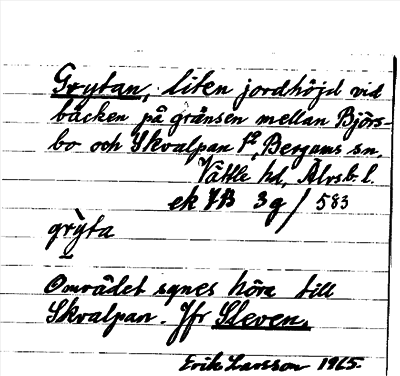 Grytan, liten jordhöjd vid
bäcken på gränsen mellan Björs-
bo och Skvalpan i Bergums sn,
Vättle hd, Älvsb. l.
ek 7B 3g/583
grỳta
Området synes höra till
Skvalpan. Jfr Sleven.
Erik Larsson 1965.